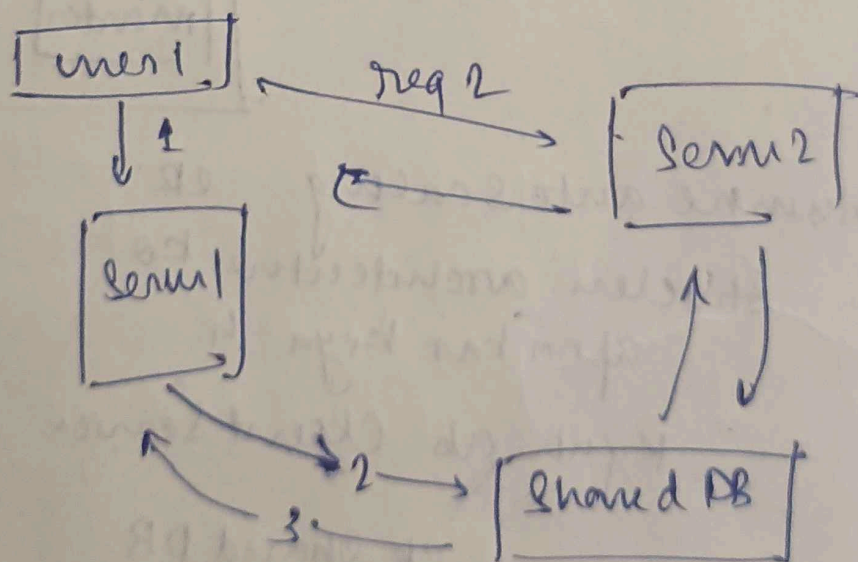 user 1
req 2
1
Server 2
Server 1
2
Shared DB
3